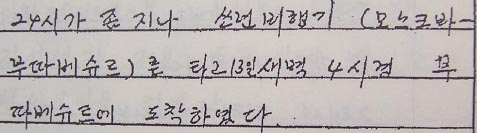 24시가 좀 지나 쏘련비행기 (모스크바-
부따베슈트)를 타고 13일 새벽 4시경 부
따베슈트에 도착하였다.